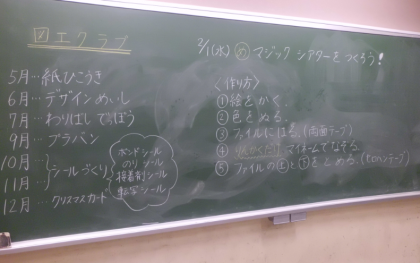 図工クラブ
5月…紙ひこうき
6月…デザインめいし
7月…わりばしでっぽう
9月…プラバン
10月…
11月…シールづくり
12月…クリスマスカード
ボンドシール
のりシール
接着剤シール
転写シール
2/1(水) め マジックシアターをつくろう!
〈作り方〉
①絵をかく。
②色をぬる。
③ファイルにはる。(両面テープ)
④ マイネームでなぞる。
⑤ファイルの と をとめる。(セロハンテープ)